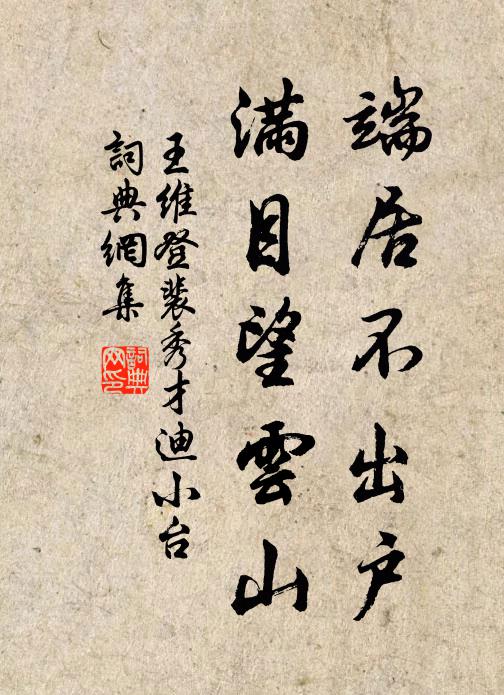 端居不出户
滿目望雲山
王維登裴秀才迪小台
詞典網集
詞典
网印